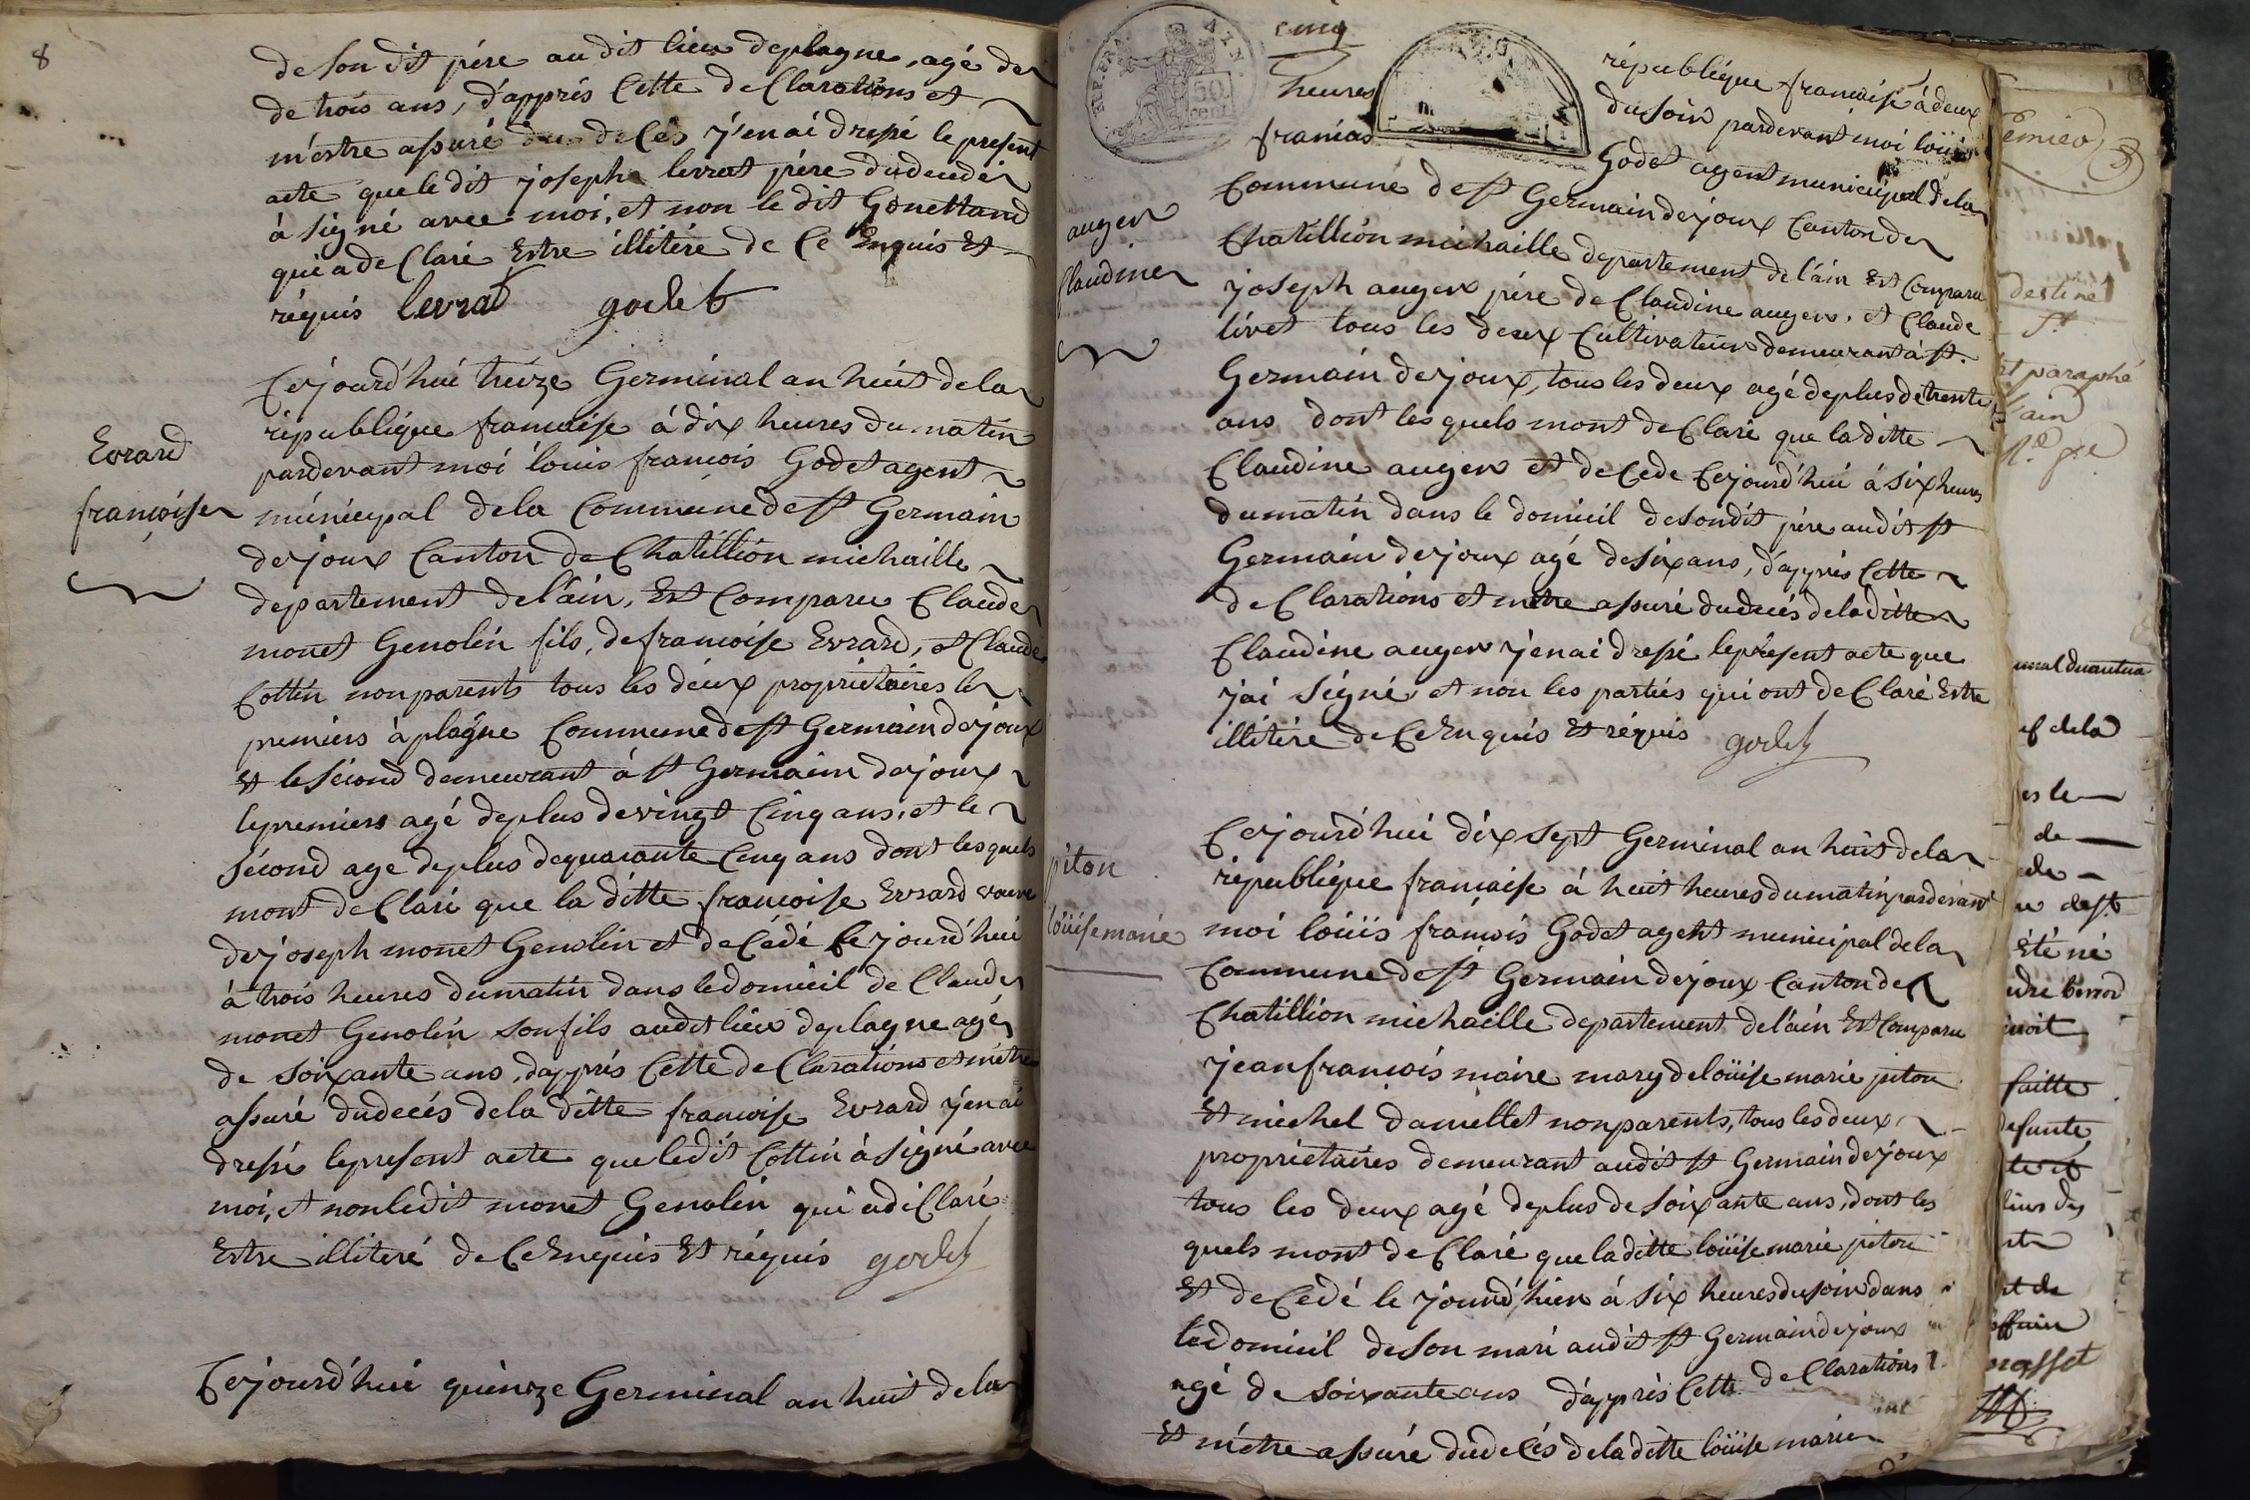 8
de son dit pére au dit lieu de plagne, agé de
de trois ans, d'apprés Cette de Clarations et
m'estre assuré du deCés j'en ai dressé le present
acte que le dit joseph levrat pére du deudé
à signé avec moi, et non le dit Gonettand
qui a de Claré Estre illitére de Ce Enquis Et
réquis levrat godet
Evrard
francoise
Cejourd'hui treize Germinal an huit de la
république francaise à dix heures du matin
pardevant moi louis francois Godet agent
municipal de la Commune de st Germain
de joux Canton de Chatillion michaille
departement de l'ain, Est Comparu Claude
monet Genolin fils, de francoise Evrard, et Claude
Cottin non parents tous les deux propriétaires le
premiers à plagne Commune de st Germain de joux
et le sécond demeurant à st Germain de joux
le premiers agé de plus de vingt Cinq ans, et le
sécond age de plus de quarante Cinq ans dont les quels
mont de Claré que la ditte francoise Evrard veuve
de joseph monet Genolin et deCédé Cejourd'hui
à trois heures du matin dans le domicil de Claude
monet Genolin son fils audit lieu de plagne agé
de soixante ans, d'apprés Cette de Clarations et m'etre
assuré du decés de la ditte francoise Evrard j'en ai
dressé le present acte que le dit Cottin à signé avec
moi, et non le dit monet Genolin qui a de Claré
Estre illiteré de Ce Enquis Et réquis godet
Cejourd'hui quinze Germinal an huit de la
cinq
heures
REP. FRA.
AIN.
50
cent
république francaise à deux
du soir pardevant moi louis
francois
Godet agent municipal de la
auger
Claudine
Commune de st Germain de joux Canton de
Chatillion michaille departement de l'ain Est Comparu
joseph auger pére de Claudine auger, et Claude
livet tous les deux Cultivateurs demeurant à st.
Germain de joux, tous les deux agé de plus de trente
ans dont les quels mont de Claré que la ditte
Claudine auger et deCede Cejourd'hui à six heures
du matin dans le domicil de son dit pére au dit st
Germain de joux agé de six ans, d'apprés Cette
de Clarations et m'etre assuré du decés de la ditte
Claudine auger j'en ai dressé le présent acte que
j'ai signé et non les partiés qui ont de Claré Estre
illitére de Ce Enquis Et réquis godet
piton
loüise marie
Cejourd'hui dix sept Germinal an huit de la
république francaise à huit heures du matin pardevant
moi loüis francois Godet agent municipal de la
Commune de st Germain de joux Canton de
Chatillion michaille departement de l'ain Est Comparu
jean francois maire mary de loüise marie piton
Et michel damellet non parents, tous les deux
propriétaires demeurant au dit st Germain de joux
tous les deux agé de plus de soixante ans, dont les
quels mont de Claré que la ditte loüise marie piton
Et deCedé le jourd'hier à six heures du soir dans
le domicil de son mari au dit st Germain de joux
agé de soixante ans d'apprés Cette de Clarations
Et m'étre assuré du deCés de la ditte loüise marie
destiné
st
et paraphé
l'ain
de la
de
de st
été né
faitte
defunte